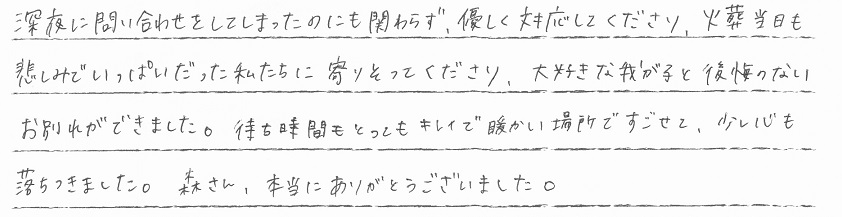 深夜に問い合わせをしてしまったのにも関わらず、優しく対応してくださり、火葬当日も
悲しみでいっぱいだった私たちに寄りそってくださり、大好きな我が子と後悔のない
お別れができました。待ち時間もとってもキレイで暖かい場所ですごせて、少し心も
落ちつきました。森さん、本当にありがとうございました。